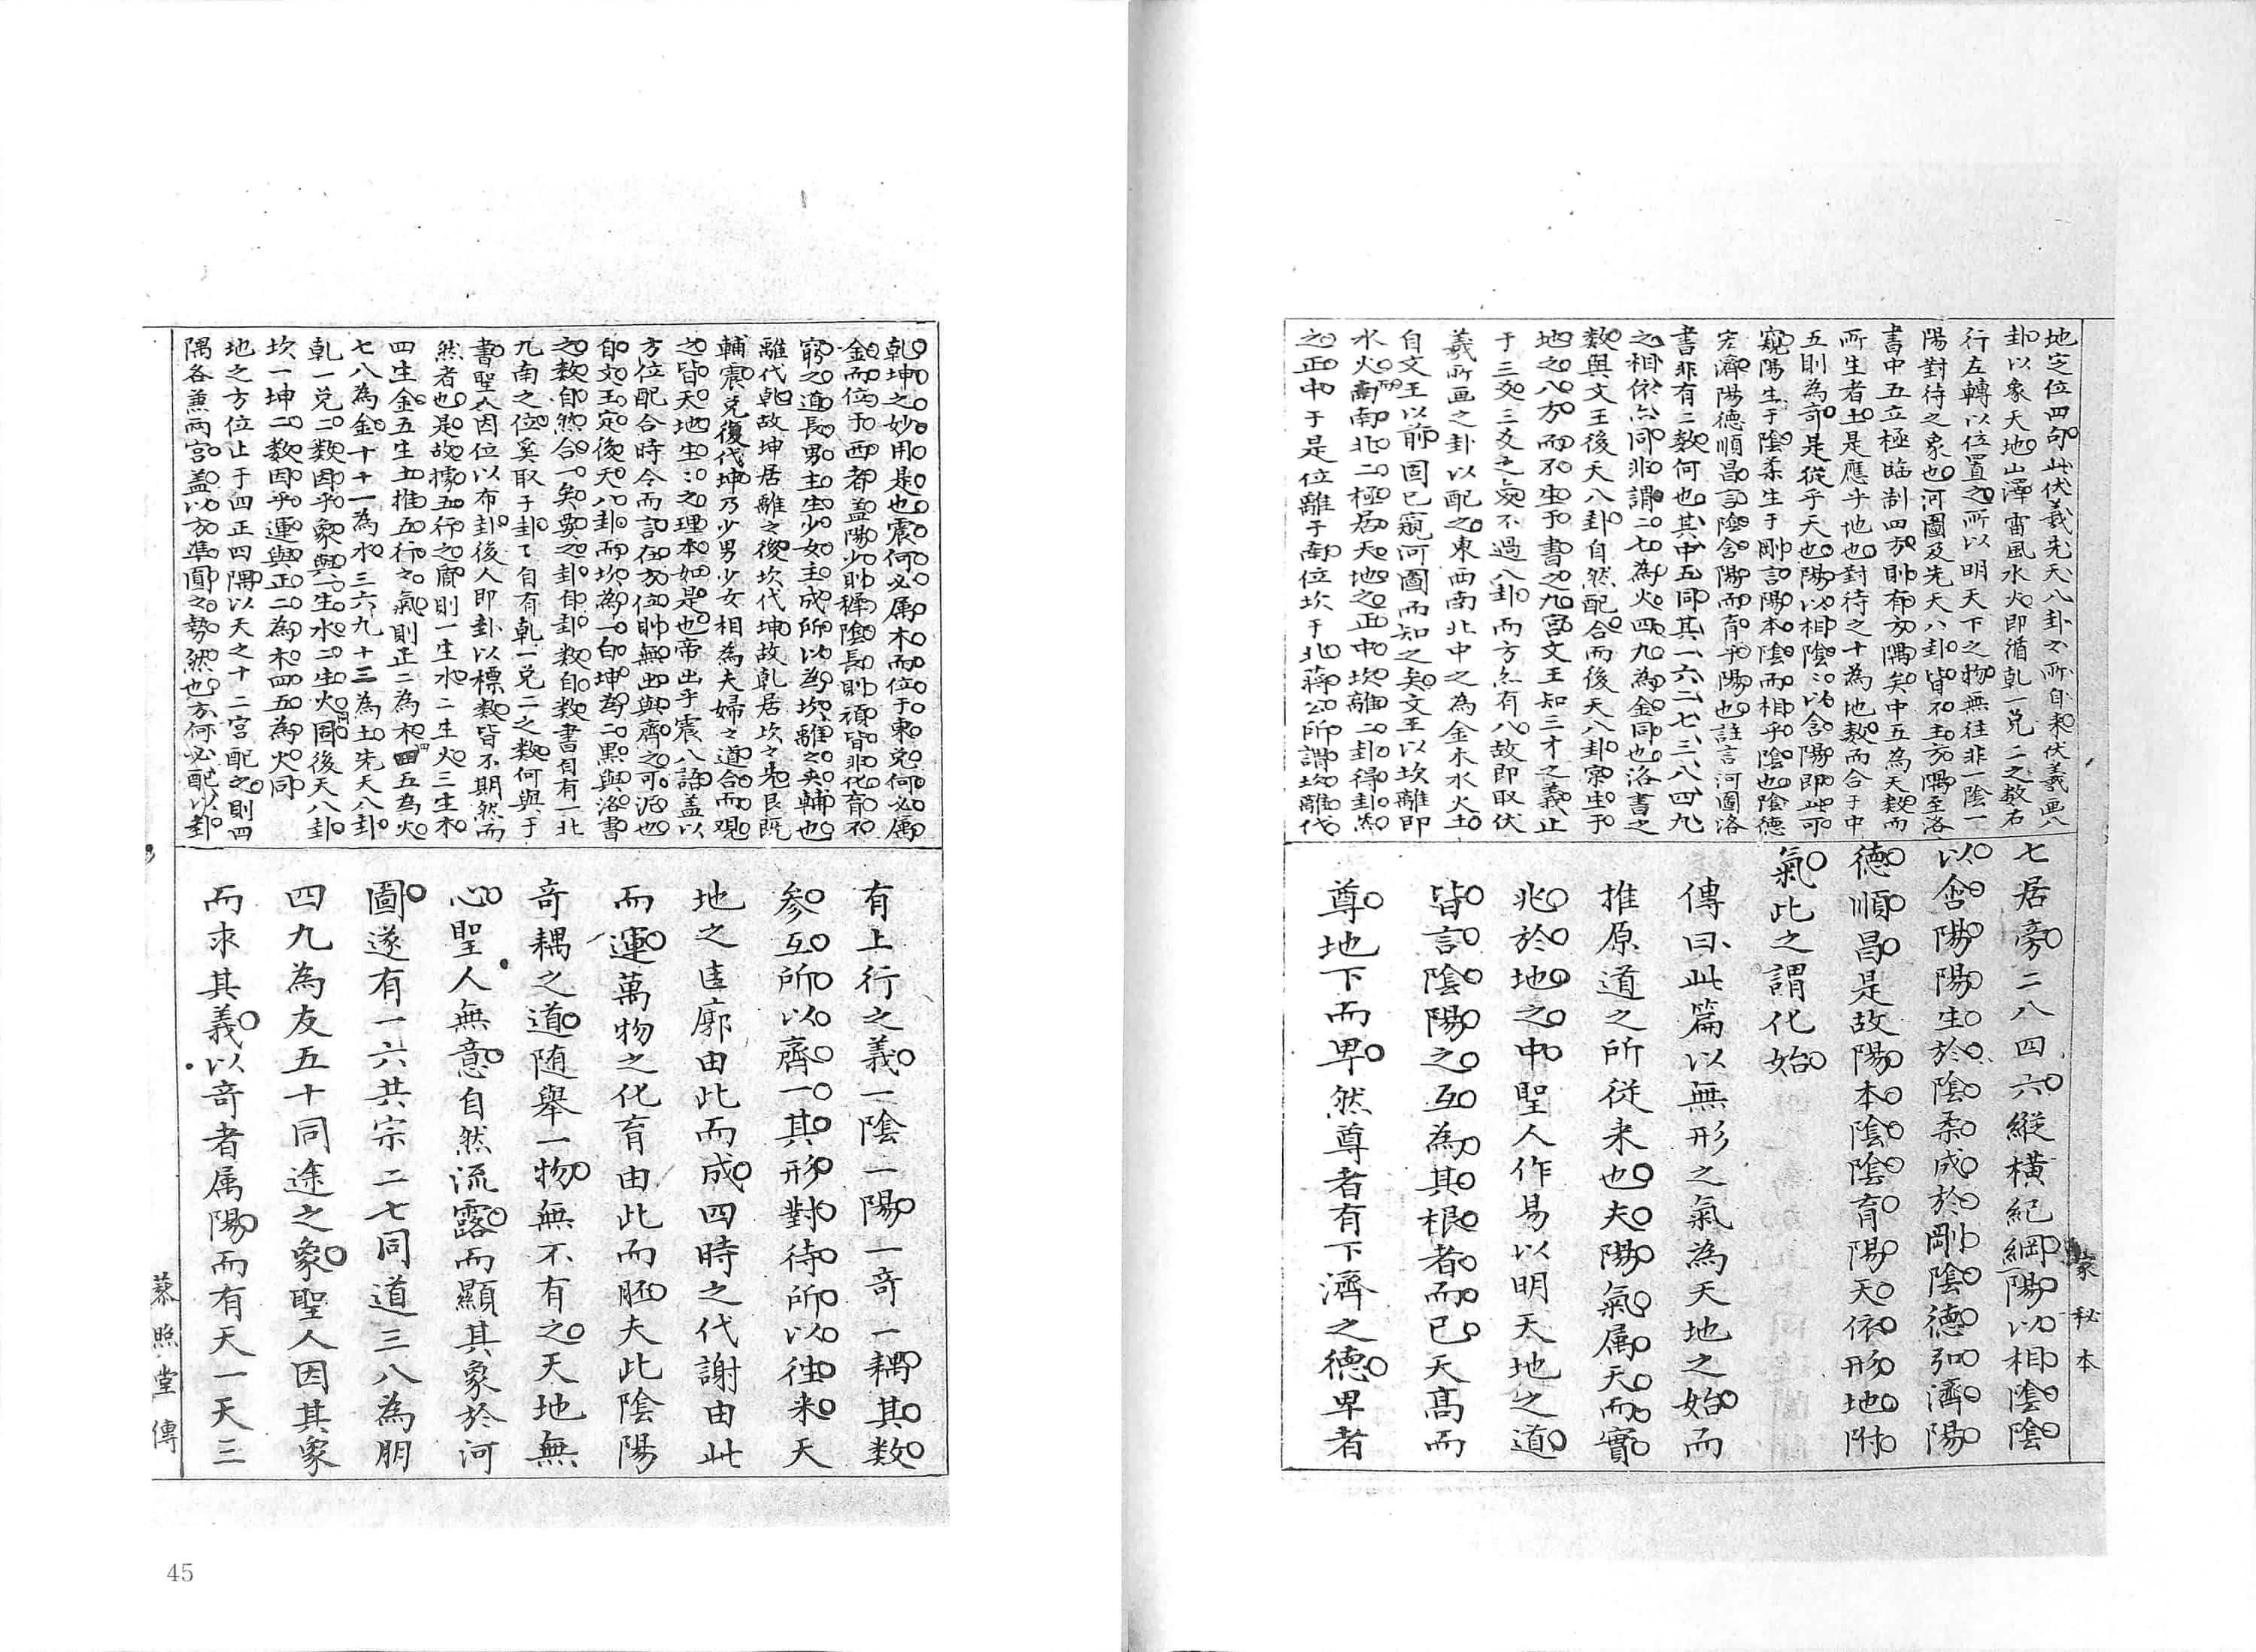 地定位四句此伏羲先天八卦之所自来伏羲画八
卦以象天地山澤雷風水火即循乹一兑二之数右
行左轉以位置之所以明天下之物無往非一陰一
陽對待之象也河圖及先天八卦皆不主方隅至洛
書中五立極臨制四方則有方隅矣中五為天数而
所生者土是應乎地也對待之十為地数而合于中
五則為奇是從乎天也陽以相陰陰以含陽即此可
窺陽生于陰柔生于剛言陽本陰而相乎陰也陰德
宏濟陽德順昌言陰含陽而育乎陽也註言河圖洛
書非有二数何也其中五同其一六二七三八四九
之相依亦同非謂二七為火四九為金同也洛書之
数與文王後天八卦自然配合而後天八卦宗生于
地之八方而不生于書之九宫文王知三才之義止
于三爻三爻之变不過八卦而方亦有八故即取伏
羲所画之卦以配之東西南北中之為金木水火土
自文王以前固已窺河圖而知之矣文王以坎離即
水火而南北二極居天地之正中坎離二卦得卦氣
之正中于是位離于南位坎于北蔣公所謂坎離代
七居旁二八四六縱橫紀綱陽以相陰陰
以含陽陽生於陰柔成於剛陰德弘濟陽
德順昌是故陽本陰陰育陽天依形地附
氣此之謂化始
傳曰此篇以無形之氣為天地之始而
推原道之所從来也夫陽氣属天而實
兆於地之中聖人作易以明天地之道
皆言陰陽之互為其根者而已天髙而
尊地下而卑然尊者有下濟之德卑者
家秘本
乹坤之妙用是也震何必属木而位于東兑何必属
金而位于西者盖陽少則稺陰長則頑皆非化育不
窮之道長男主生少女主成所以為坎離之夹輔也
離代乹故坤居離之後坎代坤故乹居坎之先艮既
輔震兑復代坤乃少男少女相為夫婦之道合而观
之皆天地生生之理本如是也帝出乎震八語盖以
方位配合時令而言在方位則無出與齊之可泥也
自文王定後天八卦而坎為一白坤為二黒與洛書
之数自然合一矣要之卦自卦数自数書自有一北
九南之位奚取于卦卦自有乹一兑二之数何與于
書聖人因位以布卦後人即卦以標数皆不期然而
然者也是故據五行之原則一生水二生火三生木
四生金五生土推五行之氣則正二為木四五為火
七八為金十十一為水三六九十二為土先天八卦
乹一兑二数因乎象與一生水二生火同後天八卦
坎一坤二数因乎運與正二為木四五為火同
地之方位止于四正四隅以天之十二宫配之則四
隅各兼両宫盖以方準圓之勢然也方何必配以卦
有上行之義一陰一陽一奇一耦其数
参互所以齊一其形對待所以徃来天
地之匡廓由此而成四時之代謝由此
而運萬物之化育由此而胚夫此陰陽
奇耦之道随舉一物無不有之天地無
心聖人無意自然流露而顯其象於河
圖遂有一六共宗二七同道三八為朋
四九為友五十同途之象聖人因其象
而求其義以奇者属陽而有天一天三
慕照堂傳
45